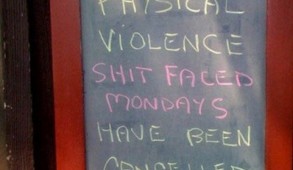 PHYSICAL
VIOLENCE
SHIT FACED
MONDAYS
HAVE BEEN
CANCELLED